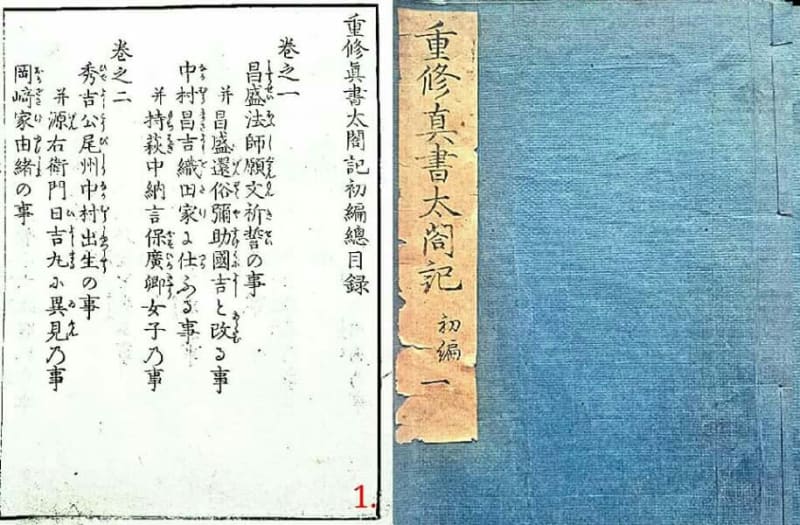 重修眞書太閤記初編總目録
巻之一
昌盛法師願文祈誓の事
并昌盛還俗彌助國吉と改る事
中村昌吉織田家に仕ふる事
并持萩中納言保廣卿女子乃事
巻之二
秀吉公尾州中村出生の事
并源右衛門日吉丸に異見乃事
岡﨑家由緒の事
1.
重修真書太閤記
初編
一